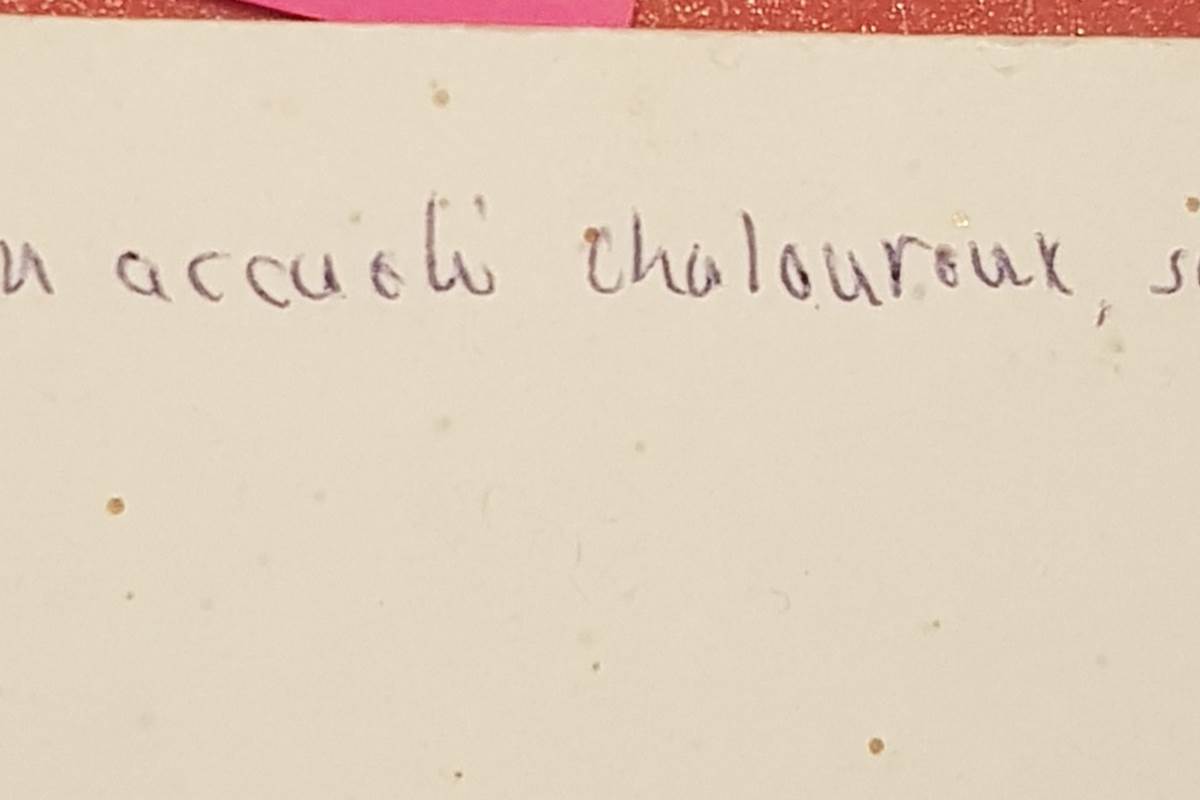 accueli chalouroux,